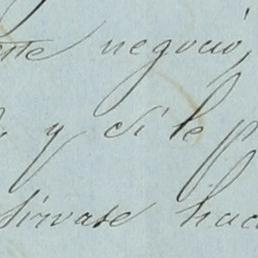 este negocio,
y si le p
sirvase hac